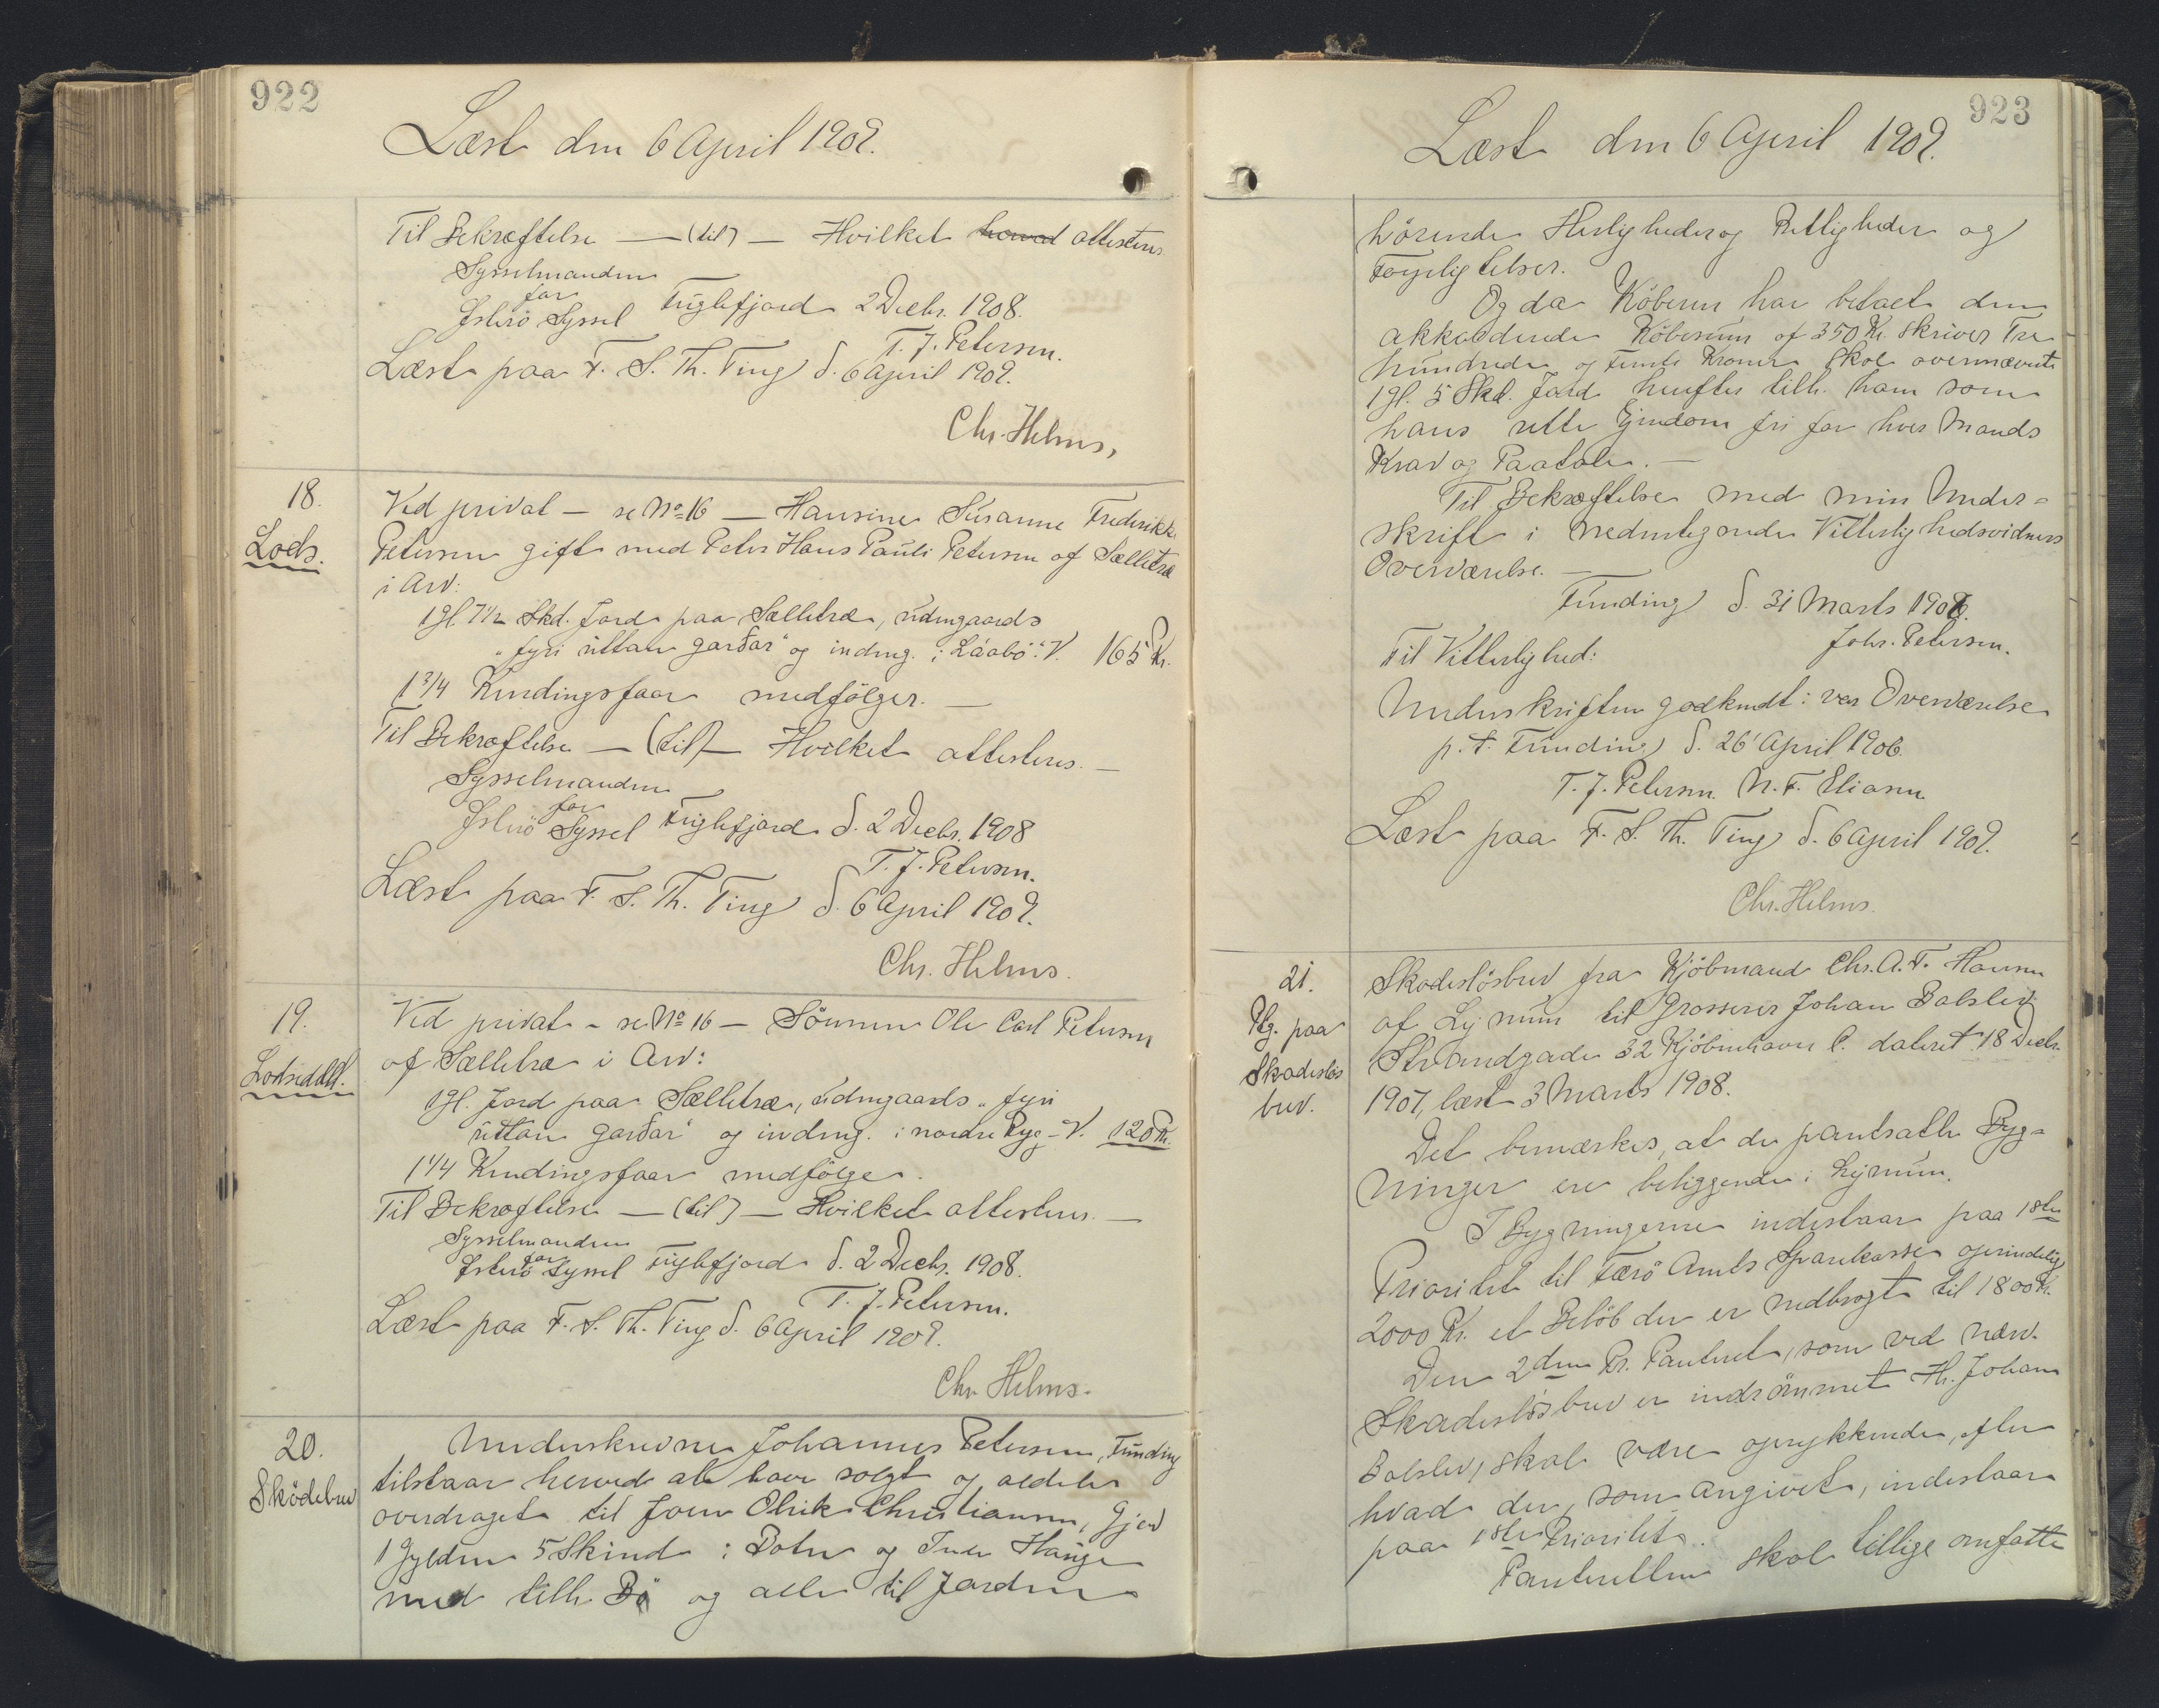 922
Læst den 6 April 1909.
Til Bekræftelse — (til) — Hvilket herved attesteres
Sysselmanden
for
Österö Syssel Fuglefjord 2 Decbr. 1908.
T. J. Petersen.
Læst paa F. S. Th. Ting d. 6 April 1909.
Chr. Helms,
18.
Lods.
Ved privat — se No 16 — Hansine Susanne Frederikke
Petersen gift med Peter Hans Pauli Petersen af Sælletræ
i Arv:
1 gl. 7 1/2 Skd. Jord paa Sælletræ, udengaards
"fyri uttan garðar" og indeng. i Láabö": V. 165 Kr.
1 3/4 Kundingsfaar medfölger. —
Til Bekræftelse — (til) — Hvilket attesteres. —
Sysselmanden
for
Österö Syssel Fuglefjord d. 2 Decbr. 1908
T. J. Petersen.
Læst paa F. S. Th. Ting d. 6 April 1909.
Chr. Helms.
19.
Lodseddel.
Ved privat - se No 16 — Sönnen Ole Carl Petersen
af Sælletræ i Arv:
1 gl. Jord paa Sælletræ, udengaards "fyri
uttan garðar" og indeng. i nordre Ryg - V. 120 Kr.
1 1/4 Kundingsfaar medfölge.
Til Bekræftelse — (til) — Hvilket attesteres. —
Sysselmanden
for
Österö Syssel Fuglefjord d. 2 Decbr. 1908.
T. J. Petersen.
Læst paa F. S. Th. Ting d. 6 April 1909.
Chr. Helms.
20.
Sködebrev
Underskrevne Johannes Petersen, Funding
tilstaar herved at have solgt og aldeles
overdraget til Joen Olrik Christiansen, Gjov
1 Gylden 5 Skind i Boten og Inde Hauge
med tilh. Bö og alle til Jorden
923
Læst den 6 April 1909.
hörende Herligheder og Rettigheder og
Forpligtelser.
Og da Köberen har betalt den
akkorderede Köbesum af 350 Kr. skriver Tre
hundrede og femti Kroner skal ovennævnte
1 gl. 5 Skd. Jord herefter tilh. ham som
hans rette Ejendom fri for hver Mands
Krav og Paatale. —
Til Bekræftelse med min Under=
skrift i nedentegnede Vitterlighedsvidners
Overværelse. —
Funding d. 31 Marts 1906.
Johs. Petersen.
Til Vitterlighed:
Underskriften godkendt i vor Overværelse
p. t. Funding d. 26 April 1906.
T. J. Petersen. N. F. Eliasen
Læst paa F. S. Th. Ting d. 6 April 1909.
Chr. Helms.
21.
Ptg. paa
Skadeslös
brev.
Skadeslösbrev fra Kjöbmand Chr. A. F. Hansen
af Lejnum til Grosserer Johan Balslev
Strandgade 32 Kjöbenhavn C. dateret 18 Decbr.
1907, læst 3 Marts 1908.
Det bemærkes, at de pantsatte Byg=
ninger ere beliggende i Lejnum.
I Bygningerne indestaar paa 1ste
Prioritet til Færö Amts Sparekasse oprindelig
2000 Kr. et Belöb der er nedbragt til 1800 Kr.
Den 2den Pr. Panteret, som ved nærv.
Skadeslösbrev er indrömmet Hr. Johan
Balslev, skal være oprykkende, efter
hvad der, som angivet, indestaar
paa 1ste Prioritet.
Panteretten skal tillige omfatte